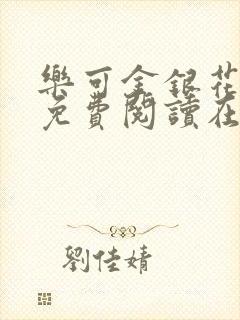 樂可金銀花
免費閱讀在
劉佳婧